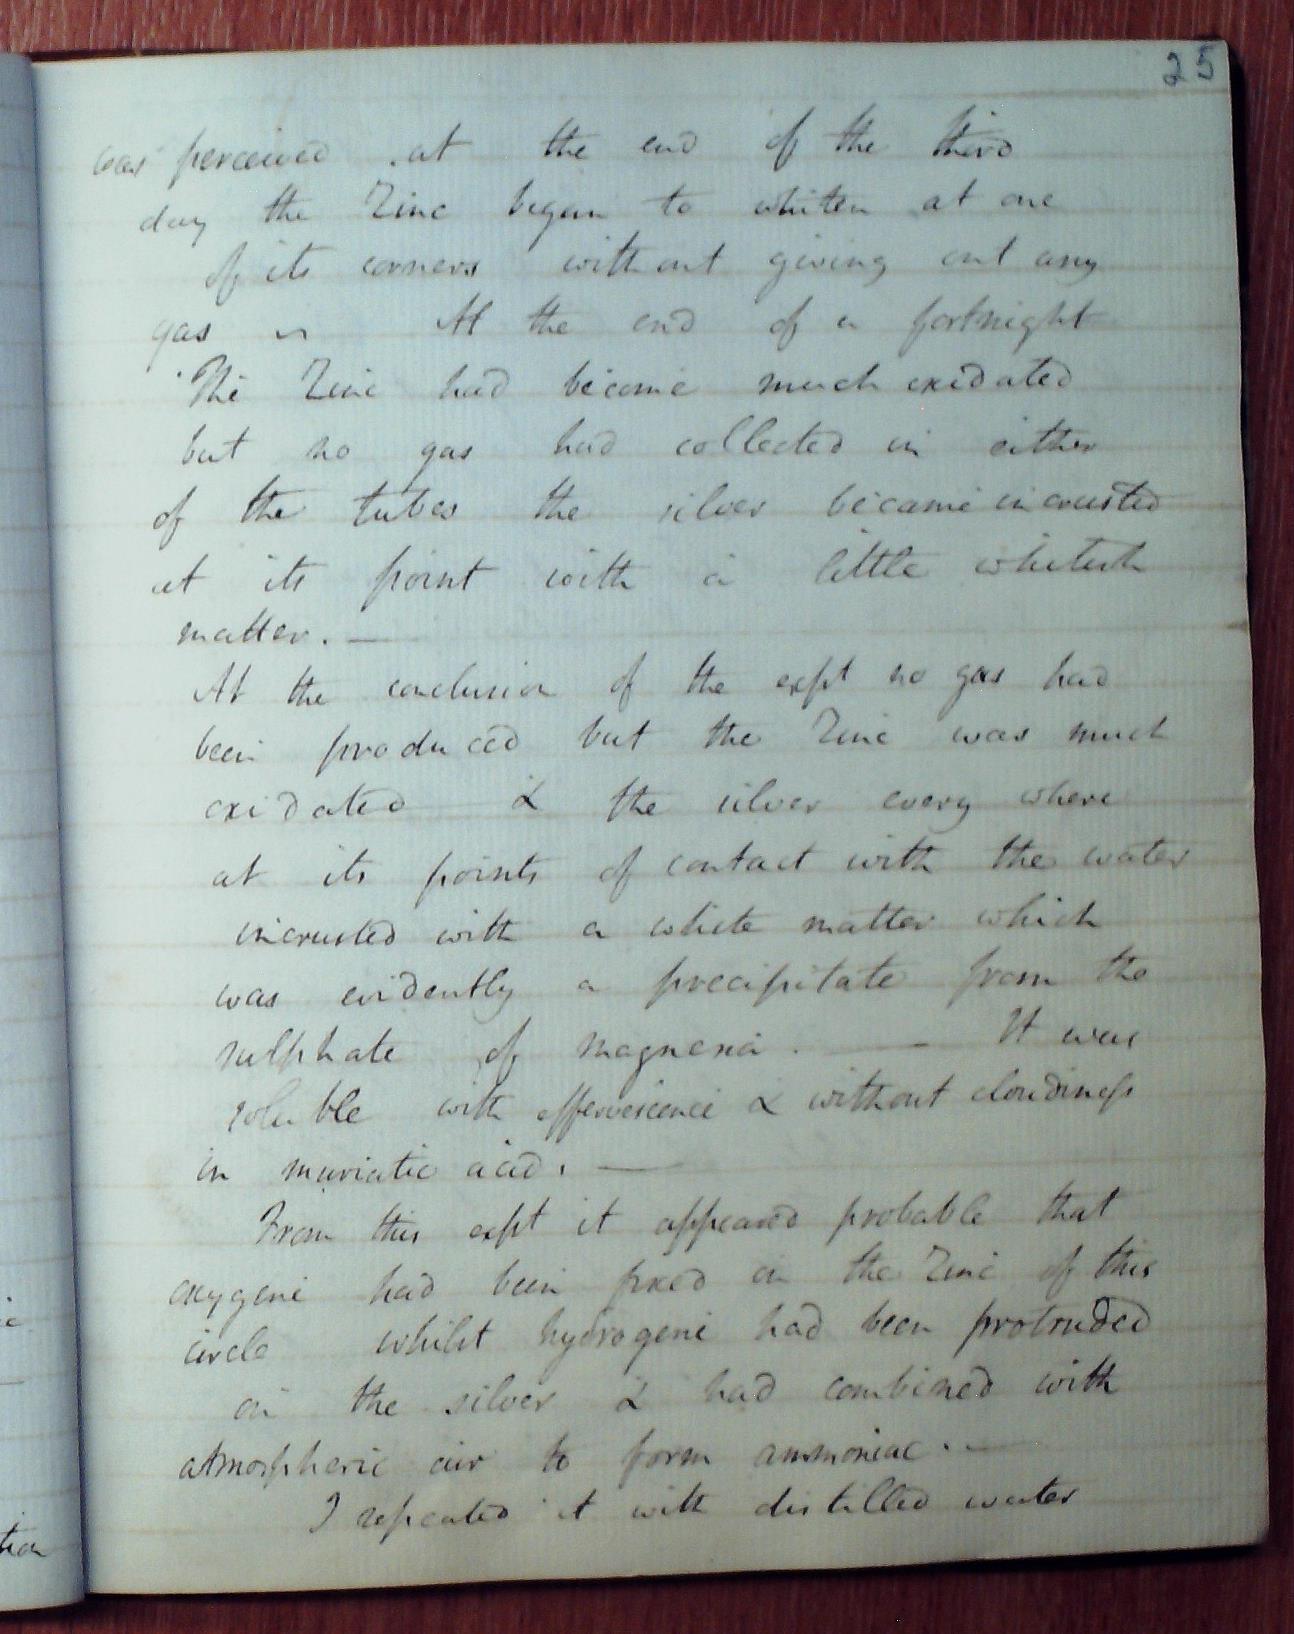 25
was perceived . at the end of the third
day the Zinc began to whiten at one
of its corners without giving out any
gas ~ At the end of a fortnight
The Zinc had become much oxidated
but no gas had collected in either
of the tubes the silver became incrusted
at its point with a little whitish
matter. —
At the conclusion of the expt no gas had
been produced but the Zinc was much
oxidated & the silver every where
at its points of contact with the water
incrusted with a white matter which
was evidently a precipitate from the
sulphate of magnesia . — It was
soluble with effervescence & without cloudiness
in muriatic acid. —
From this expt it appeared probable that
oxygene had been fixed in the Zinc of this
circle whilst hydrogene had been protruded
on the silver & had combined with
atmospheric air to form ammoniac . —
I repeated it with distilled water